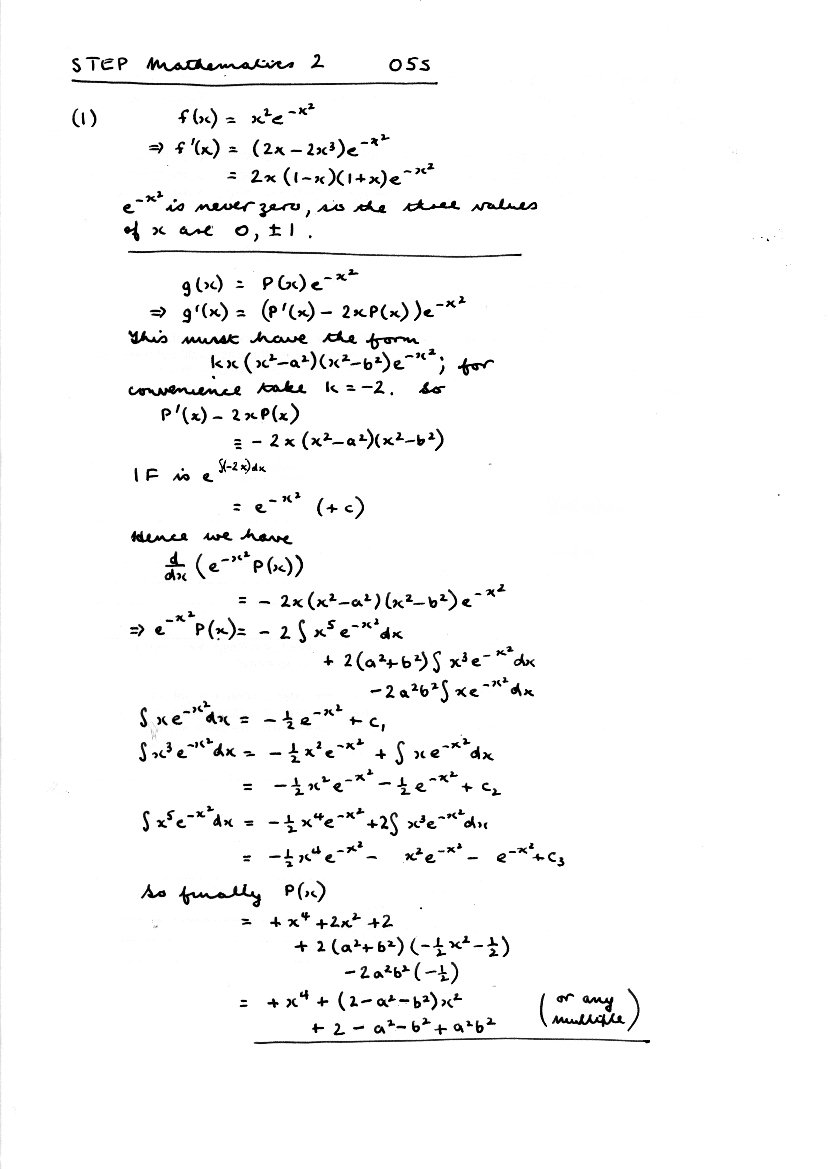 STEP Mathematics 2 05S
(1) f(x) = x²e^{-x²}
⇒ f'(x) = (2x - 2x³)e^{-x²}
= 2x(1-x)(1+x)e^{-x²}
e^{-x²} is never zero, so the three values
of x are 0, ±1.
g(x) = P(x)e^{-x²}
⇒ g'(x) = (P'(x) - 2xP(x))e^{-x²}
This must have the form
kx(x²-a²)(x²-b²)e^{-x²}; for
convenience take k = -2. So
P'(x) - 2xP(x)
≡ -2x(x²-a²)(x²-b²)
IF is e^{∫(-2x)dx}
= e^{-x²} (+c)
Hence we have
d/dx (e^{-x²}P(x))
= -2x(x²-a²)(x²-b²)e^{-x²}
⇒ e^{-x²}P(x) = -2∫x⁵e^{-x²}dx
+ 2(a²+b²)∫x³e^{-x²}dx
-2a²b²∫xe^{-x²}dx
∫xe^{-x²}dx = -½e^{-x²} + c₁
∫x³e^{-x²}dx = -½x²e^{-x²} + ∫xe^{-x²}dx
= -½x²e^{-x²} - ½e^{-x²} + c₂
∫x⁵e^{-x²}dx = -½x⁴e^{-x²} + 2∫x³e^{-x²}dx
= -½x⁴e^{-x²} - x²e^{-x²} - e^{-x²} + c₃
So finally P(x)
= +x⁴ + 2x² + 2
+ 2(a²+b²)(-½x² - ½)
-2a²b²(-½)
= +x⁴ + (2-a²-b²)x² (or any
+ 2 - a² - b² + a²b² multiple)